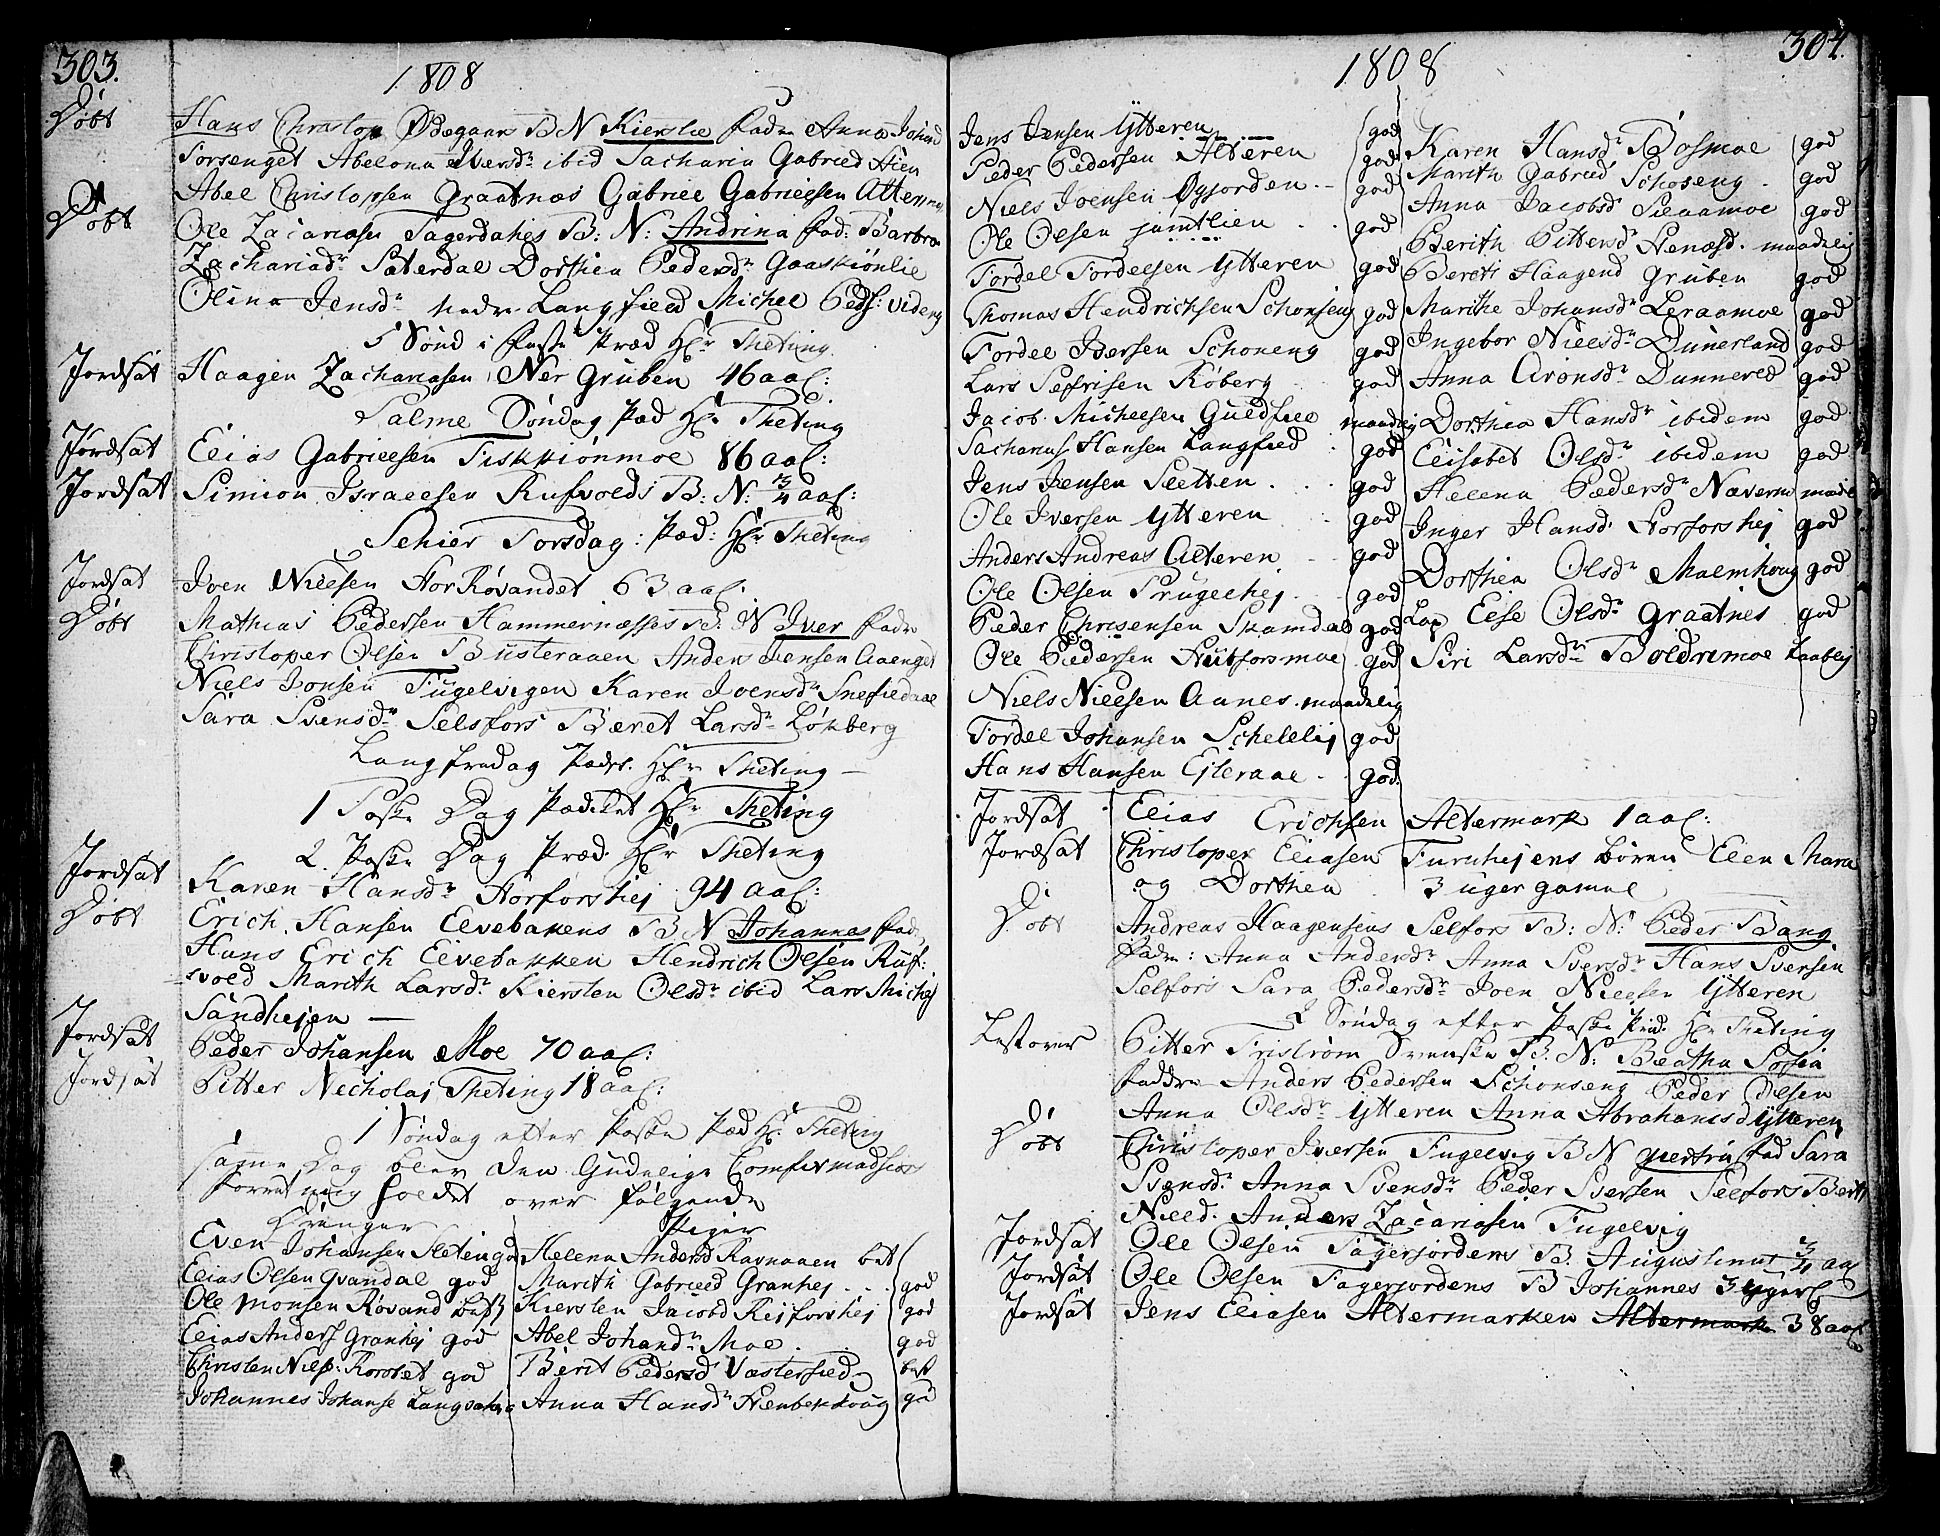 303.
1808
Døbt Hans Christop Ødegaar B N Kierstie Fadr Anna Johand
Forsenget Abelona Iversdr ibid Sacharia Gabrield Hien
Abel Christopsen Graatnæs Gabriel Gabrielsen Alteren
Døbt Ole Zacariasen Tagerdahls B: N: Andrina Fad: Barbra
Zachariadr Sæterdal Dorthea Pedersdr Gaaskiønlie
Olina Jensdr Langfield Michel Peds:
5 Sønd i Faste Præd Hr Theting
Jordsat Haagen Zachariasen Ner Gruben 46 aal:
Palme Søndag Præd Hr Theting
Jordsat Elias Gabrielsen Fiskkiønmoe 86 aal:
Jordsat Simion Israelsen Rufsvolds B: N: 3/4 aal:
Schier Torsdag: Præd: Hr Theting
Jordsat Joen Nielsen Røvandet 63 aal.
Døbt Mathias Pedersen Hammernæsses B: N Iver Fadr
Christoper Olsen Busteraaen Anders Jensen Aaenget
Niels Jonsen Fugelvigen Karen Joensdr Snefieldaae
Sara Svensdr Selsfors Beret Larsdr Løkberg
Langfredag Præd. Hr Theting —
1 Paske Dag Præd Hr Theting
2 Paske Dag Præd Hr Theting
Jordsat Karen Hansdr Storforshej 94 aal:
Døbt Erich Hansen Elvebakens B N Johannes Fad
Hans Erich Elvebakken Hendrich Olsen Ruf:
svold Marith Larsdr Kiersten Olsdr ibid Lars Michej
Sandhejen —
Jordsat Peder Johansen Moe 70 aal:
Jordsat Pitter Necholaj Theting 18 aal:
1 Søndag efter Paske Præd Hr Theting
samme Dag blev den Gudelige Comfermadsions
Forretning holdet over følgende
Drænger Piger
Even Johansen Sletten god Helena Andersd Ravnaaen bet
Elias Olsen Qvandal god Marith Gabrield Granhej . . . god
Ole Monsen Røvand best Kiersten Jacobd Rejforshej god
Elias Anders Granhej god Abel Johandr Moe . god
Christen Niels: Rorstet god Berit Pedersd Væsterfield best
Johannes Johanse Anna Hansdr god
304.
1808
Jens Jensen Ytteren god
Peder Pedersen Alteren god
Niels Joensen Øyjorden . – god
Ole Olsen jamtlien . . god
Tordel Tordelsen Ytteren god
Thomas Hendrichsen Schonseng god
Tordel Iversen Schoneng god
Lars Sefrisen Røberg god
Jacob Michelsen Guldfiel maadlig
Sacharias Hansen Langfield god
Jens Jensen Sletten . . . god
Ole Iversen Ytteren god
Anders Andreas Alteren god
Ole Olsen Prugelhej . . god
Peder Chrisensen Skamdal god
Ole Pedersen god
Niels Nielsen Aanes . maadelig
Tordel Johansen Schellej god
Hans Hansen Ejteraae . . god
Karen Hansdr Bosmoe god
Marith Gabrield Schoseng . god
Anna Jacobsd Slaamoe god
Berith Pittersdr Stenæsd . maadelig
Berett Haagend Gruben god
Marithe Johansdr Leraamoe god
Ingebor Nielsdr Dunerland god
Anna Aronsdr Dunnered god
Dorthea Hansdr ibidem god
Elisabet Olsdr ibidem god
Helena Pedersdr Næverne maad
Inger Hansd. Storforshej god
Dorthea Olsdr Malmhoug god
Lap Else Olsdr Graatnes god
Siri Larsdr Boldrimoe
Jordsat Elias Erichsen Altermark 1 aal:
Jordsat Christoper Eliasen Furuhejens børen Elen Mara
og Dorthea 3 uger gamel
Døbt Andreas Haagensens Selfors B: N: Peder Bang
Fadr: Anna Andersdr Anna Iversdr Hans Iversen
Selfors Sara Pedersdr Joen Nielsen Ytteren
2 Søndag efter Paske Præd Hr Theting
Lestover Pitter Fristrøm Svenske B: N: Beatha Sofia
Faddre Anders Pedersen Schonseng Peder Olsen
Anna Olsdr Ytteren Anna Abrahamsd Ytteren
Døbt Christoper Iversen Fugelvig B N giertru Fad Sara
Svensdr Anna Svensdr Peder Iversen Selfors Berit
Nield. Anders Zacariasen Fugelvig
Jordsat Ole Olsen Fagerjordens B. Augustinus 3/4 aal
Jordsat Ole Olsen Fagerjordens B Johannes 3 uger
Jordsat Jens Eliasen Altermarken Altermark 38 aal